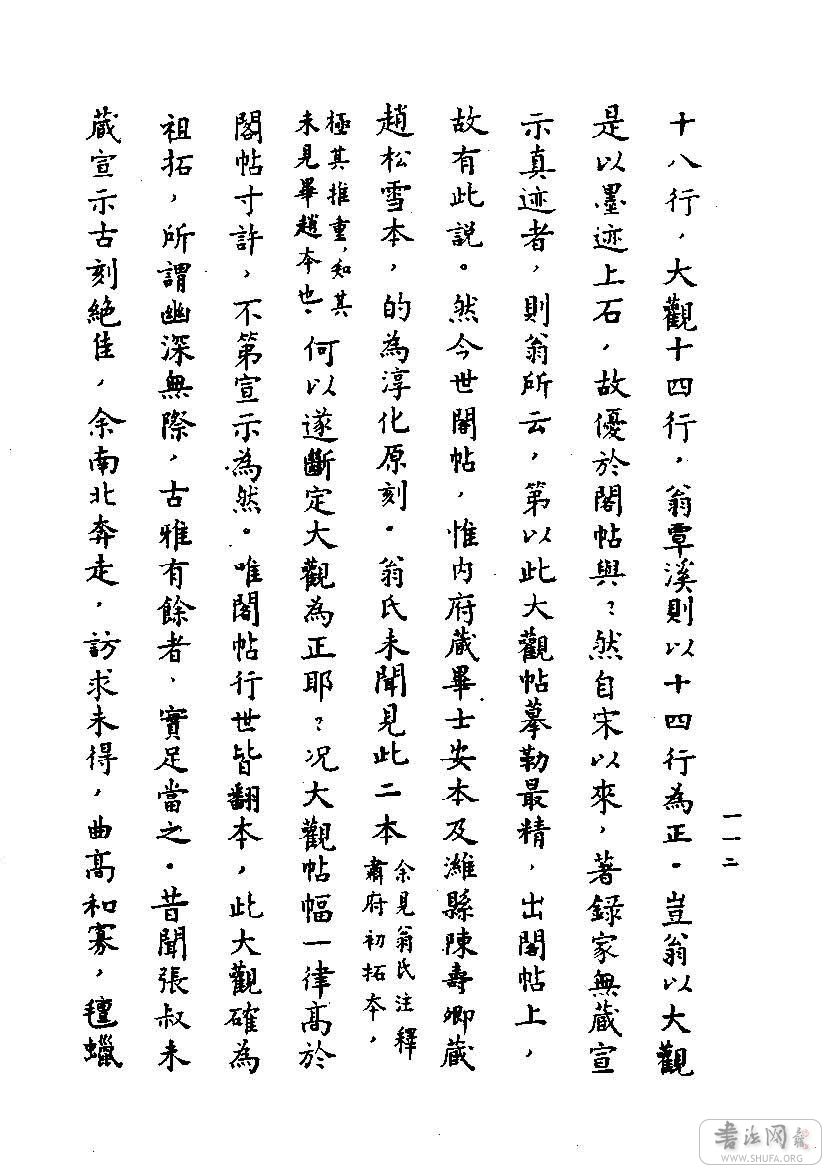 十八行，大觀十四行，翁覃溪則以十四行為正。豈翁以大觀
是以墨迹上石，故優於閣帖與？然自宋以來，著錄家無藏宣
示真迹者，則翁所云，第以此大觀帖摹勒最精，出閣帖上，
故有此説。然今世閣帖，惟内府藏畢士安本及濰縣陳壽卿藏
趙松雪本，的為淳化原刻。翁氏未聞見此二本余見翁氏注釋
肅府初拓本，
極其推重，知其
未見畢趙本也。何以遂斷定大觀為正耶？况大觀帖幅一律高於
閣帖寸許，不第宣示為然。唯閣帖行世皆翻本，此大觀確為
祖拓，所謂幽深無際，古雅有餘者，實足當之。昔聞張叔未
藏宣示古刻絶佳，余南北奔走，訪求未得，曲高和寡，氊蠟
一一二
書法网
WWW.SHUFA.ORG